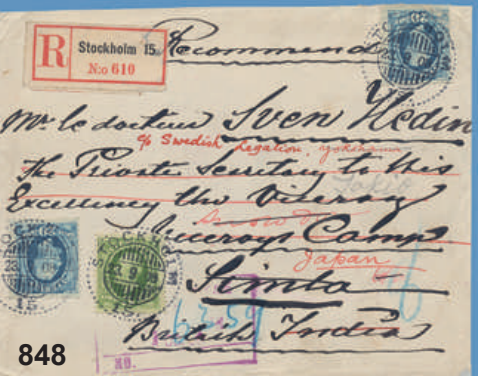 R Stockholm 15.
N:o 610
Recommend
Mr le docteur Sven Hedin
c/o Swedish Legation, Yokohama
The Private Secretary to His
Tokio
Excellency the Viceroy
Viceroys Camp
Japan
Simla
British India
STOCKHOLM
STOCKHOLM
15
STOCKHOLM
13 9
15
NO.
848